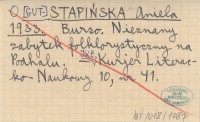 [GUT] STAPIŃSKA Aniela
1933. Burso. Nieznany
zabytek folklorystyczny na
Podhalu. Kuryer Literac-
ko-Naukowy 10, nr 41.